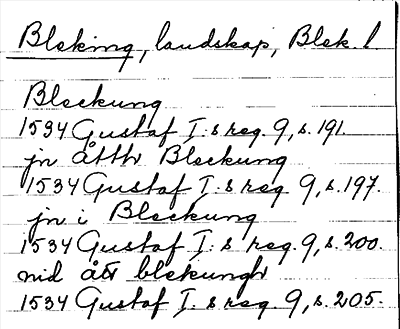 Bleking, landskap, Blek. l
Bleckung
1534 Gustaf I:s reg. 9, s. 191.
jn åtthr Bleckung
1534 Gustaf I:s reg. 9, s. 197.
jn i Bleckung
1534 Gustaf I:s reg. 9, s. 200.
nid åtr blekungh
1534 Gustaf I:s reg. 9, s. 205.